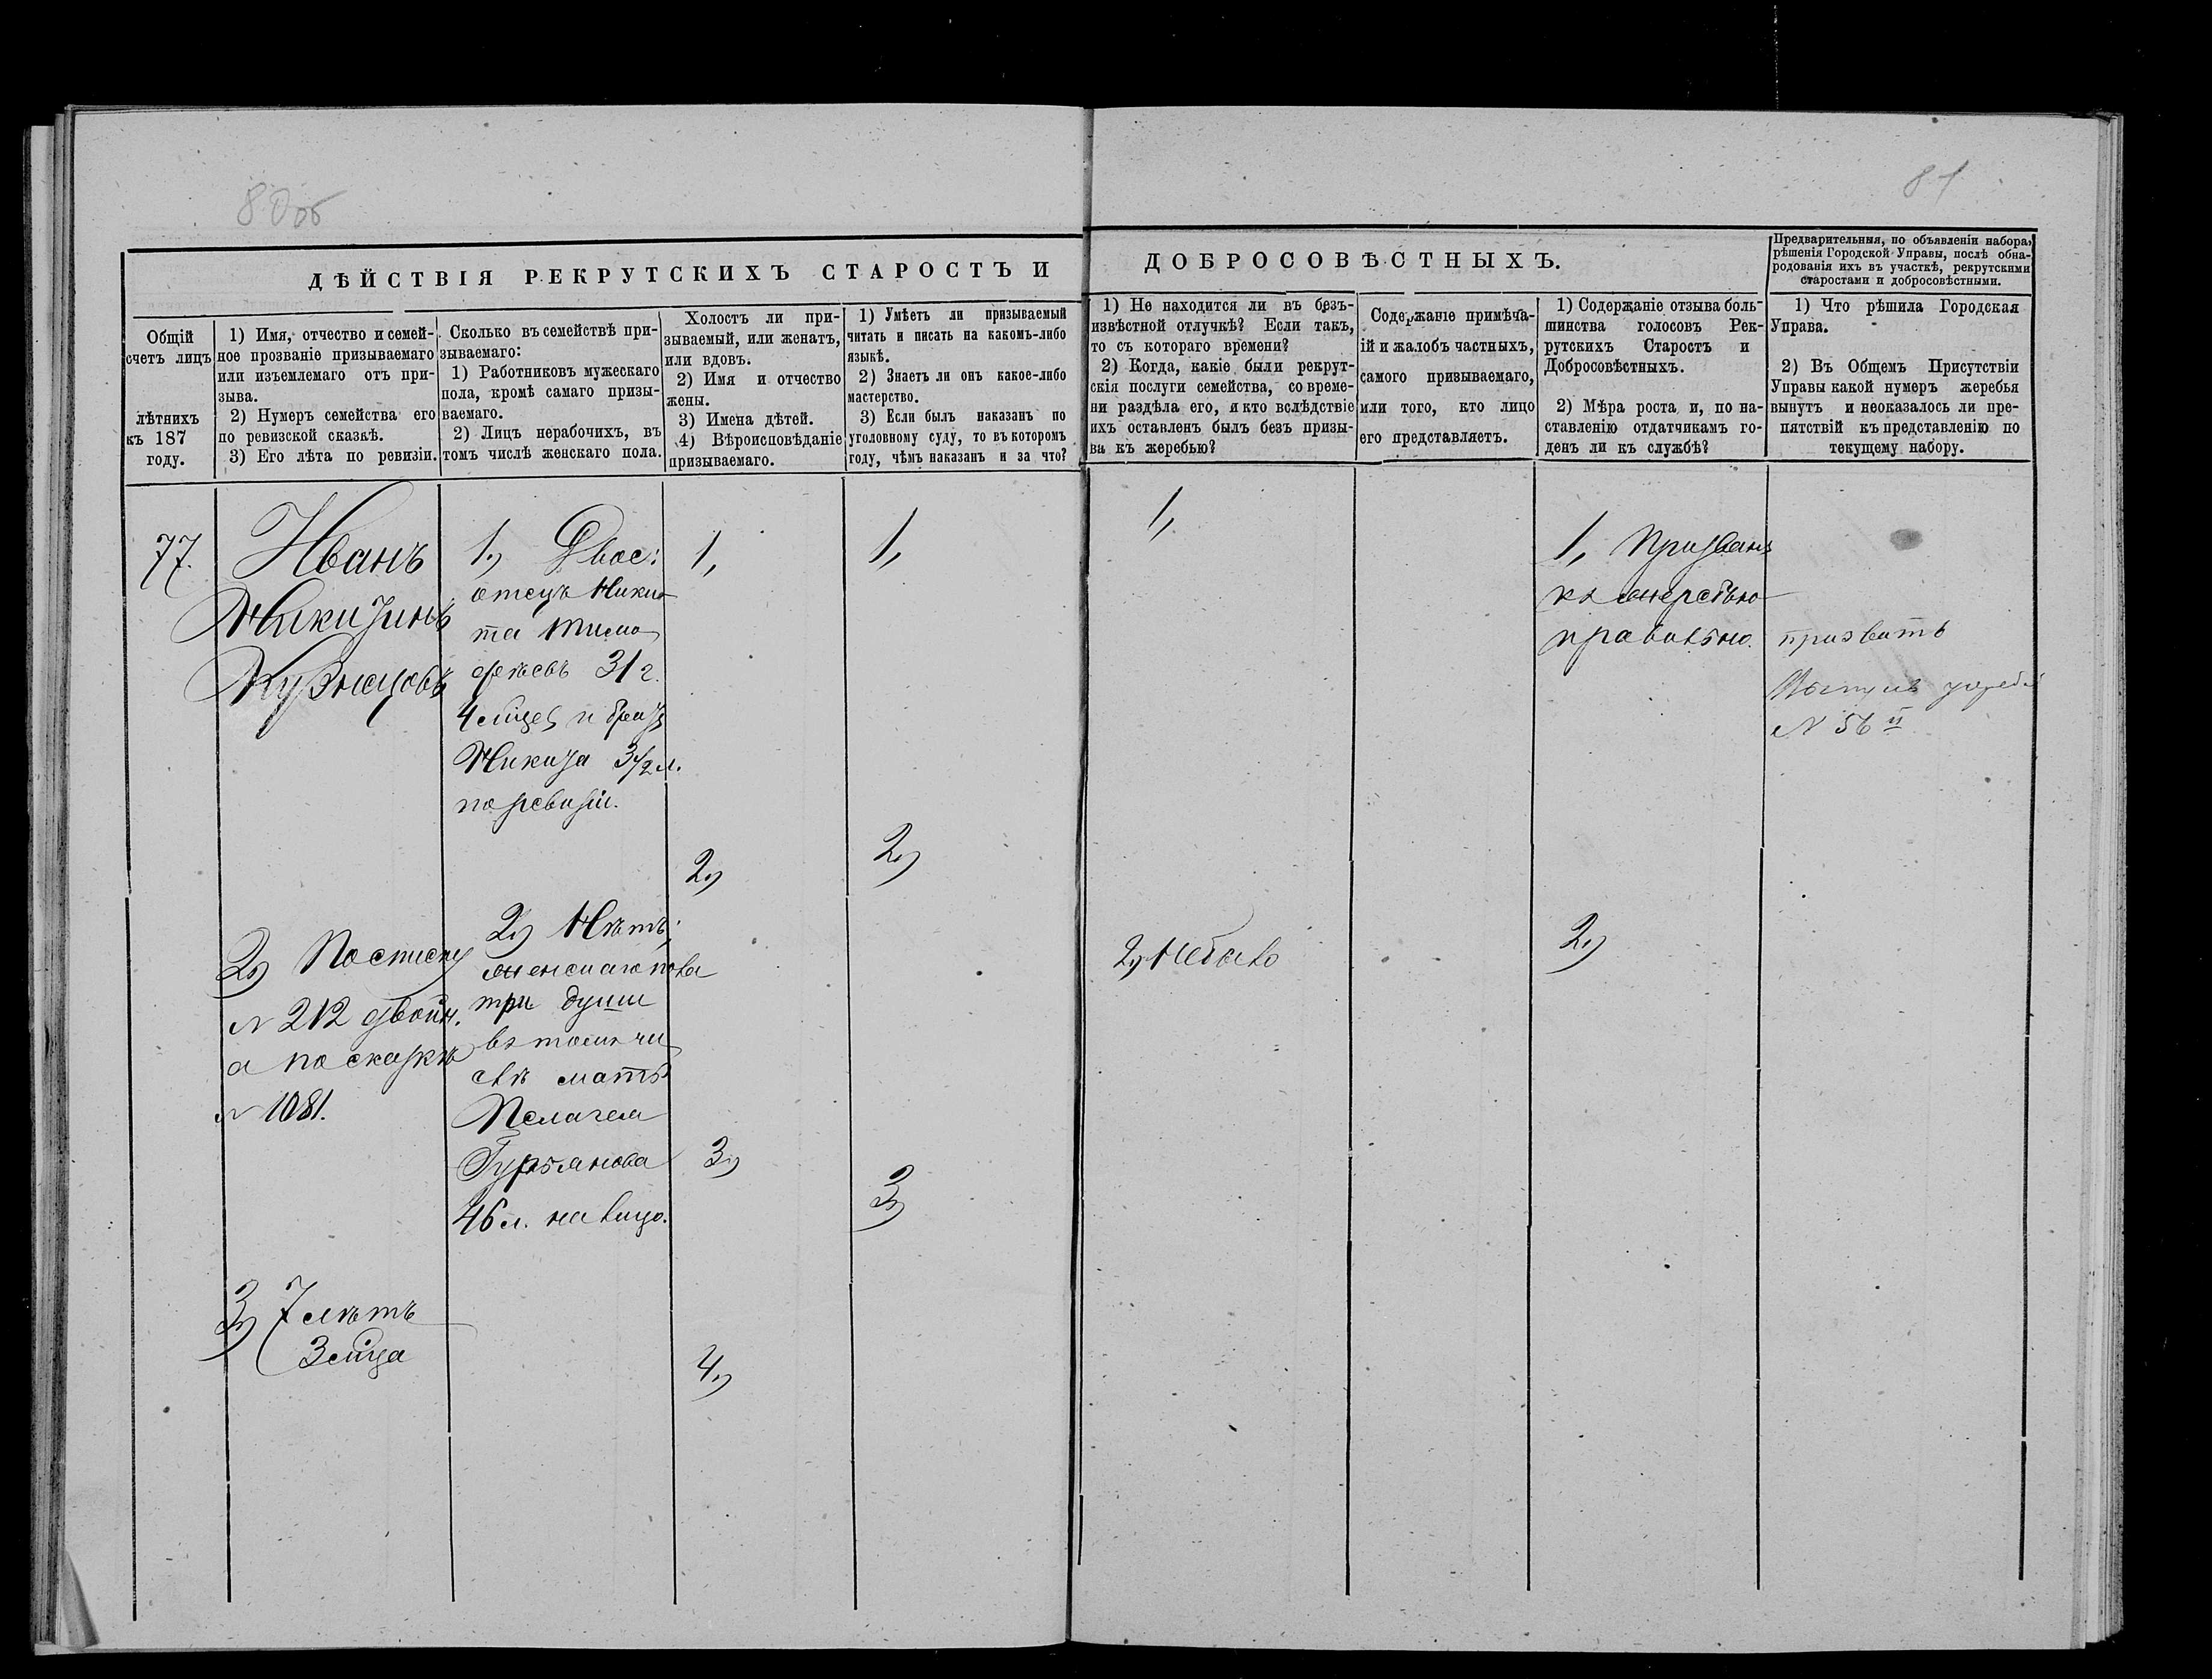 80об
81
ДѢЙСТВІЯ РЕКРУТСКИХЪ СТАРОСТЪ И
ДОБРОСОВѢСТНЫХЪ.
Предварительныя, по объявленіи набора,
рѣшенія Городской Управы, послѣ обна-
родованія ихъ въ участкѣ, рекрутскими
старостами и добросовѣстными.
Общій
счетъ лицъ
лѣтнихъ
къ 187
году.
1) Имя, отчество и семей-
ное прозваніе призываемаго
или изъемлемаго отъ при-
зыва.
2) Нумеръ семейства его
по ревизской сказкѣ.
3) Его лѣта по ревизіи.
Сколько въ семействѣ при-
зываемаго:
1) Работниковъ мужескаго
пола, кромѣ самаго призы-
ваемаго.
2) Лицъ нерабочихъ, въ
томъ числѣ женскаго пола.
Холостъ ли при-
зываемый, или женатъ,
или вдовъ.
2) Имя и отчество
жены.
3) Имена дѣтей.
4) Вѣроисповѣданіе
призываемаго.
1) Умѣетъ ли призываемый
читать и писать на какомъ-либо
языкѣ.
2) Знаетъ ли онъ какое-либо
мастерство.
3) Если былъ наказанъ по
уголовному суду, то въ которомъ
году, чѣмъ наказанъ и за что?
1) Не находится ли въ безъ-
извѣстной отлучкѣ? Если такъ,
то съ котораго времени?
2) Когда, какіе были рекрут-
скія послуги семейства, со време-
ни раздѣла его, и кто вслѣдствіе
ихъ оставленъ былъ безъ призы-
ва къ жеребью?
Содержаніе примѣча-
ій и жалобъ частныхъ,
самого призываемаго,
или того, кто лицо
его представляетъ.
1) Содержаніе отзыва боль-
шинства голосовъ Рек-
рутскихъ Старостъ и
Добросовѣстныхъ.
2) Мѣра роста и, по на-
ставленію отдатчикамъ го-
денъ ли къ службѣ?
1) Что рѣшила Городская
Управа.
2) Въ Общемъ Присутствіи
Управы какой нумеръ жеребья
вынутъ и неоказалось ли пре-
пятствій къ представленію по
текущему набору.
77.
Иванъ
Никитинъ
Кузнецовъ
2) По списку
№ 212 двойн.
а по сказкѣ
№ 1081.
3) 7 лѣтъ
3 мѣца
1) Двое:
отецъ Ники
та Тимо
феевъ 31 г.
4 мѣцев и братъ
Никита 3 1/2 л.
по ревизіи.
2) Нѣтъ;
женскаго пола
три души
въ томъ чи
слѣ мать
Пелагея
Гурьянова
46 л. на лицо.
1,
2)
3)
4)
1,
2)
3)
1,
2) Небыло
1, Призванъ
къ жеребью
правильно.
2)
призвать
Вынулъ жребій
№ 56й